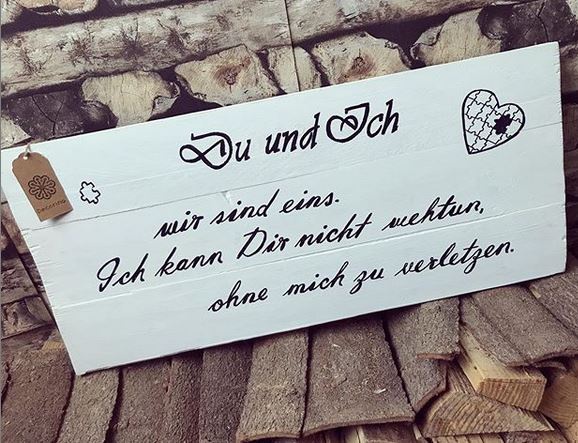 Du und Ich
wir sind eins.
Ich kann Dir nicht wehtun,
ohne mich zu verletzen.